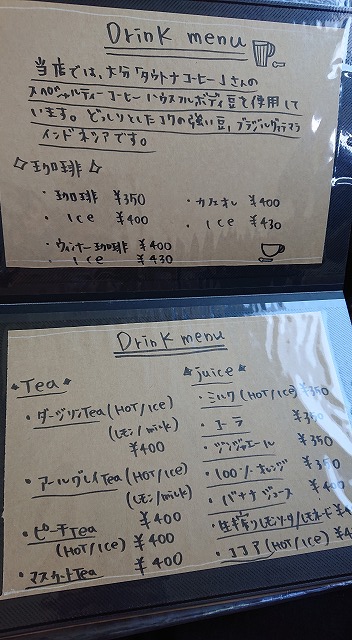 Drink menu
当店では、大分「タウトナコーヒー」さんの
スペシャルティーコーヒー ハウスフルボディ豆を使用して
います。どっしりとしたコクの強い豆、ブラジル グァテマラ
インドネシアです。
☆珈琲☆
・珈琲 ¥350
・Ice ¥400
・ウィンナー珈琲 ¥400
・Ice ¥430
・カフェオレ ¥400
・Ice ¥430
Drink menu
Tea
・ダージリンTea (HOT/Ice)
(レモン/milk)
¥400
・アールグレイTea (HOT/Ice)
(レモン/milk)
¥400
・ピーチTea ¥400
(HOT/Ice) ¥400
・マスカットTea ¥400
juice
・ミルク (HOT/Ice) ¥350
・コーラ ¥350
・ジンジャエール ¥350
・100%オレンジ ¥350
・バナナジュース ¥400
・生搾りレモンソーダ/レモネード ¥4
・ココア (HOT/Ice) ¥4